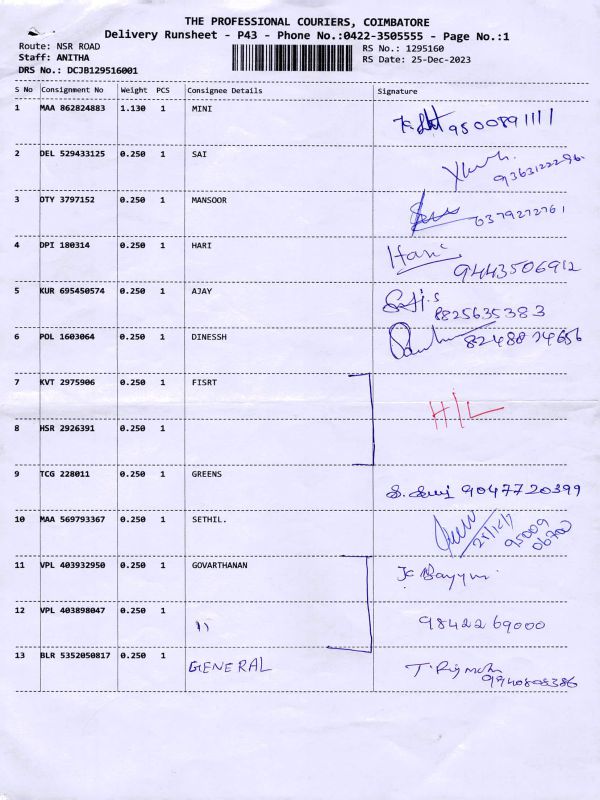 THE PROFESSIONAL COURIERS, COIMBATORE
Delivery Runsheet - P43 - Phone No.:0422-3505555 - Page No.:1
Route: NSR ROAD RS No.: 1295160
Staff: ANITHA RS Date: 25-Dec-2023
DRS No.: DCJB129516001
S No Consignment No Weight PCS Consignee Details Signature
1 MAA 862824883 1.130 1 MINI 9500891111
2 DEL 529433125 0.250 1 SAI
9363122296
3 DTY 3797152 0.250 1 MANSOOR 0379272761
4 DPI 180314 0.250 1 HARI Hari
9443506912
5 KUR 695450574 0.250 1 AJAY
8825635383
6 POL 1603064 0.250 1 DINESSH 8248874656
7 KVT 2975906 0.250 1 FISRT
H/L
8 HSR 2926391 0.250 1
9 TCG 228011 0.250 1 GREENS 9047720399
10 MAA 569793367 0.250 1 SETHIL.
95009
06700
11 VPL 403932950 0.250 1 GOVARTHANAN
12 VPL 403898047 0.250 1 11 98422 69000
13 BLR 5352050817 0.250 1 GENERAL